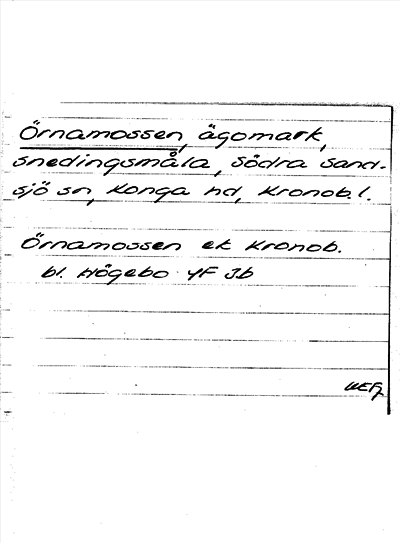 Örnamossen, ägomark,
Snedingsmåla, Södra Sand-
sjö sn, Konga hd, Kronob.l.
Örnamossen ek Kronob.
bl. Högebo 4F 3b